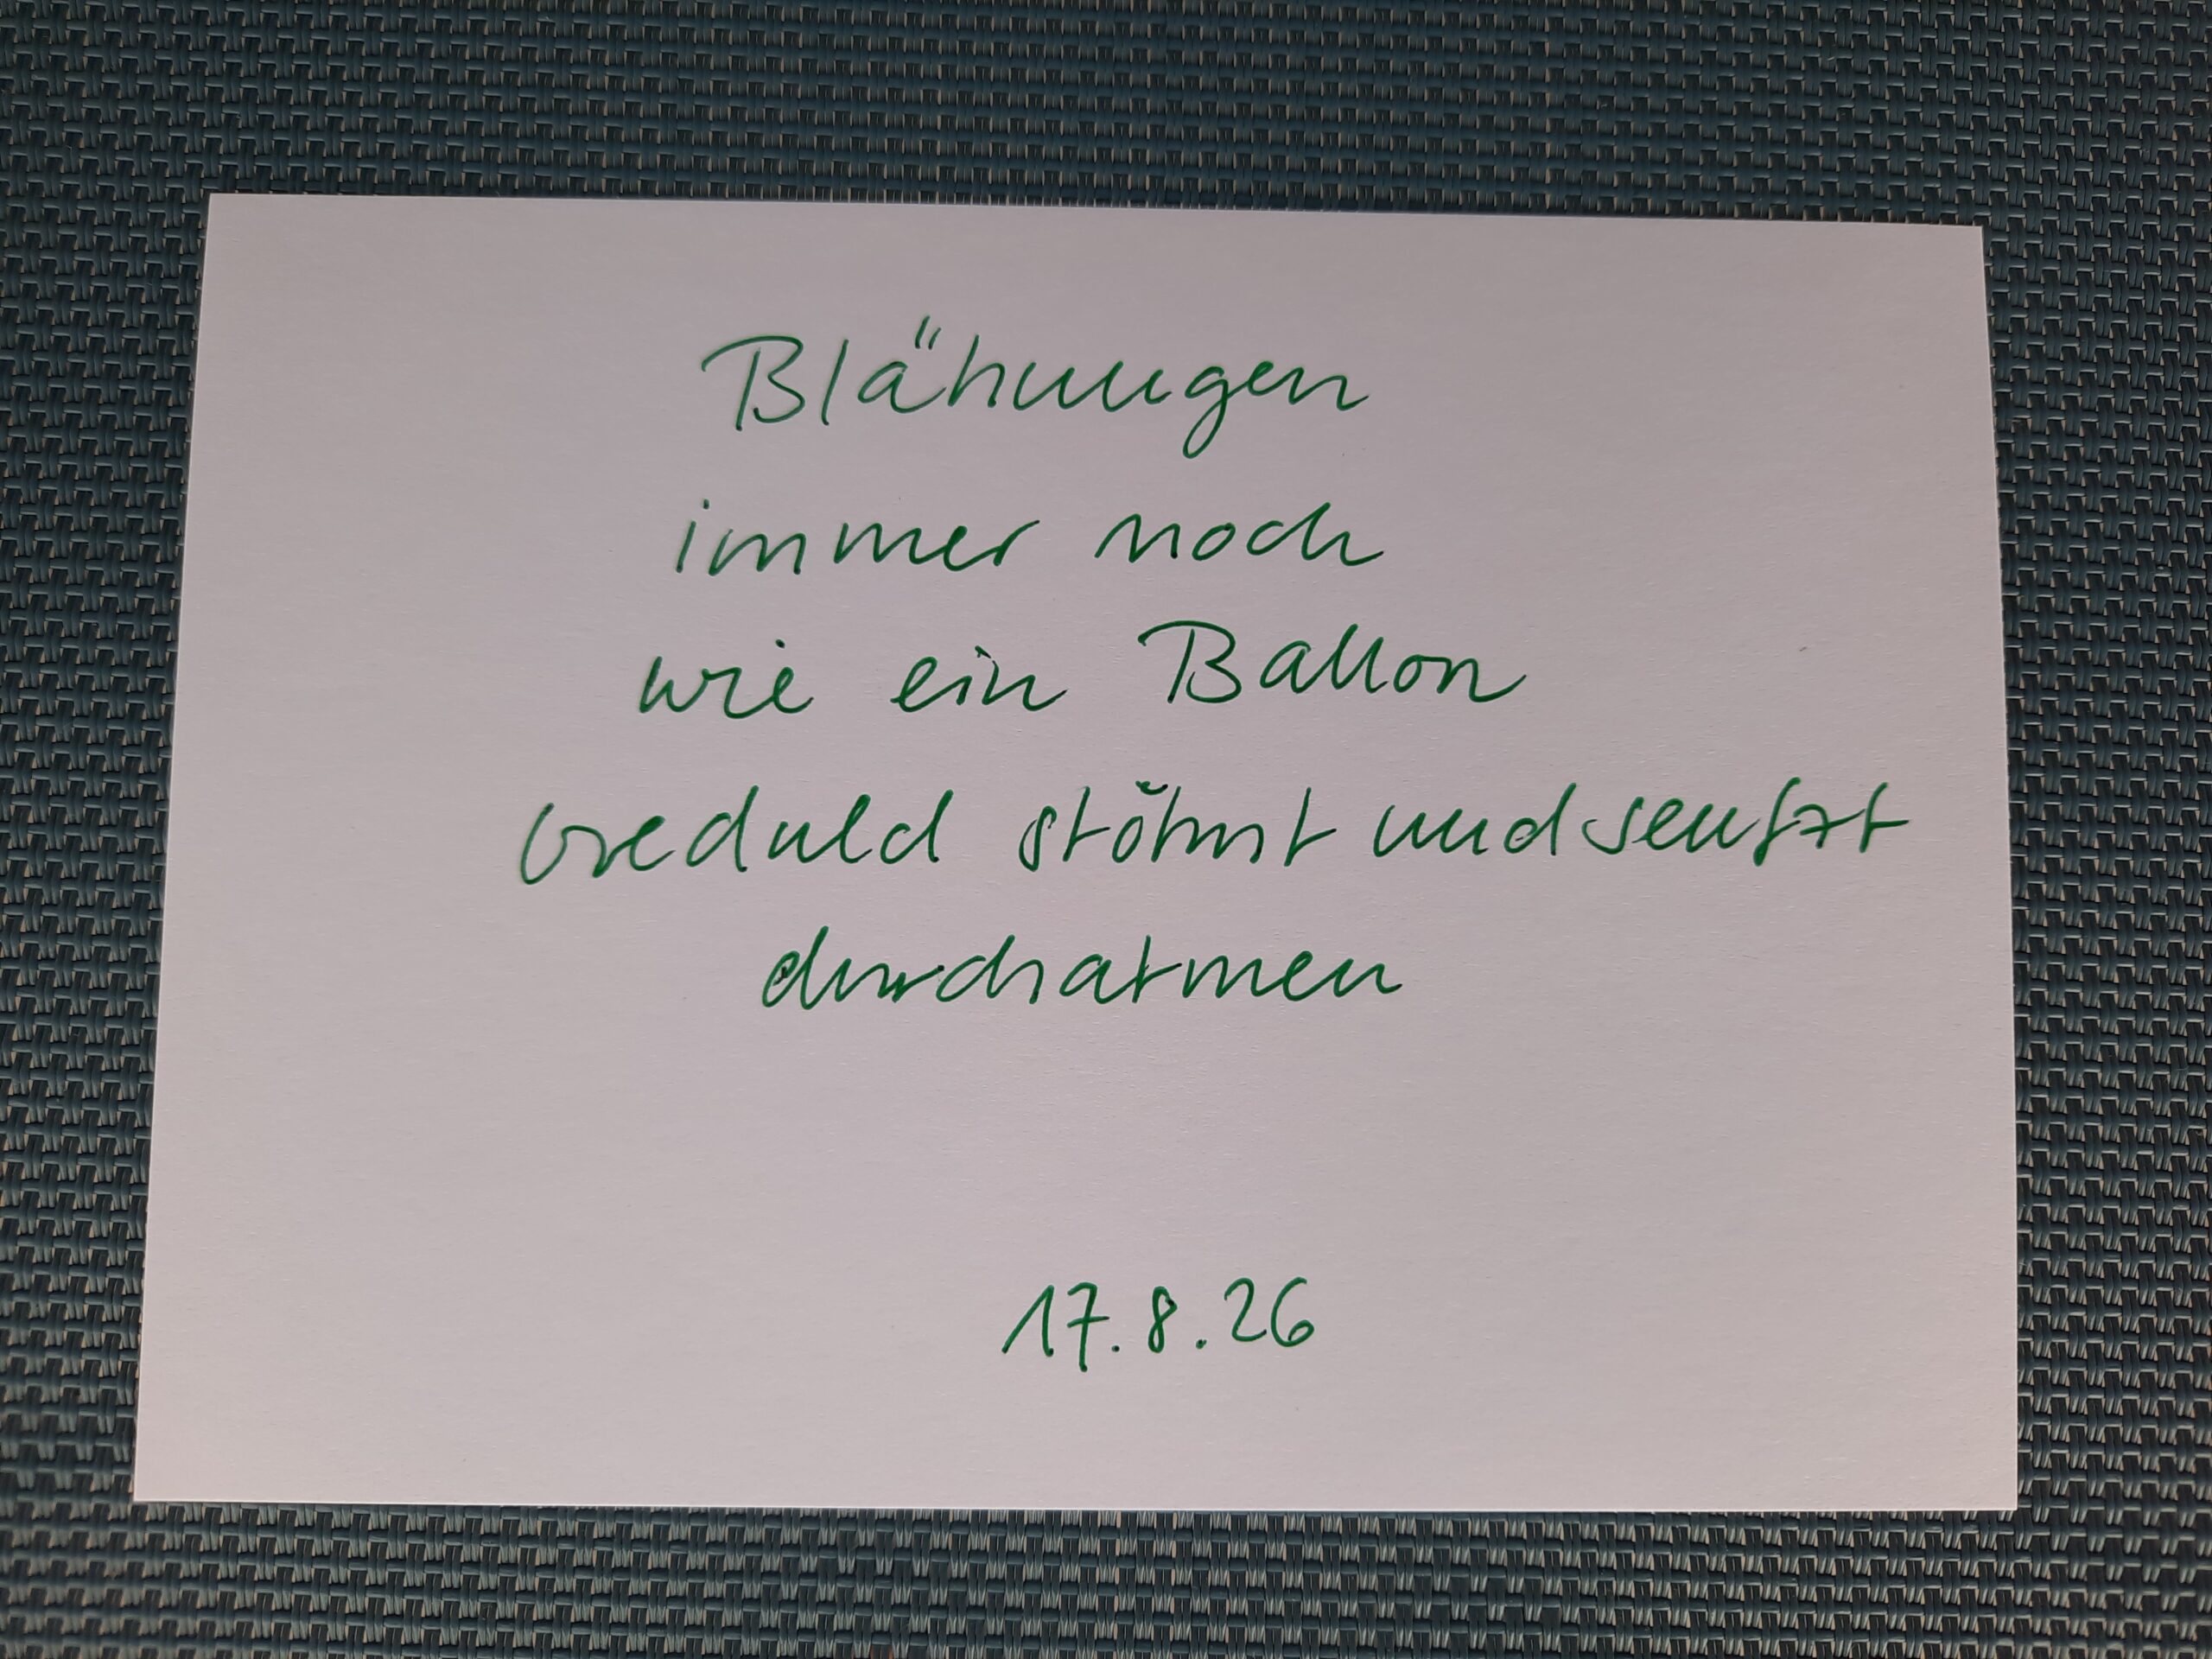 Blähungen
immer noch
wie ein Ballon
Geduld stöhnt und seufzt
durchatmen
17.8.26